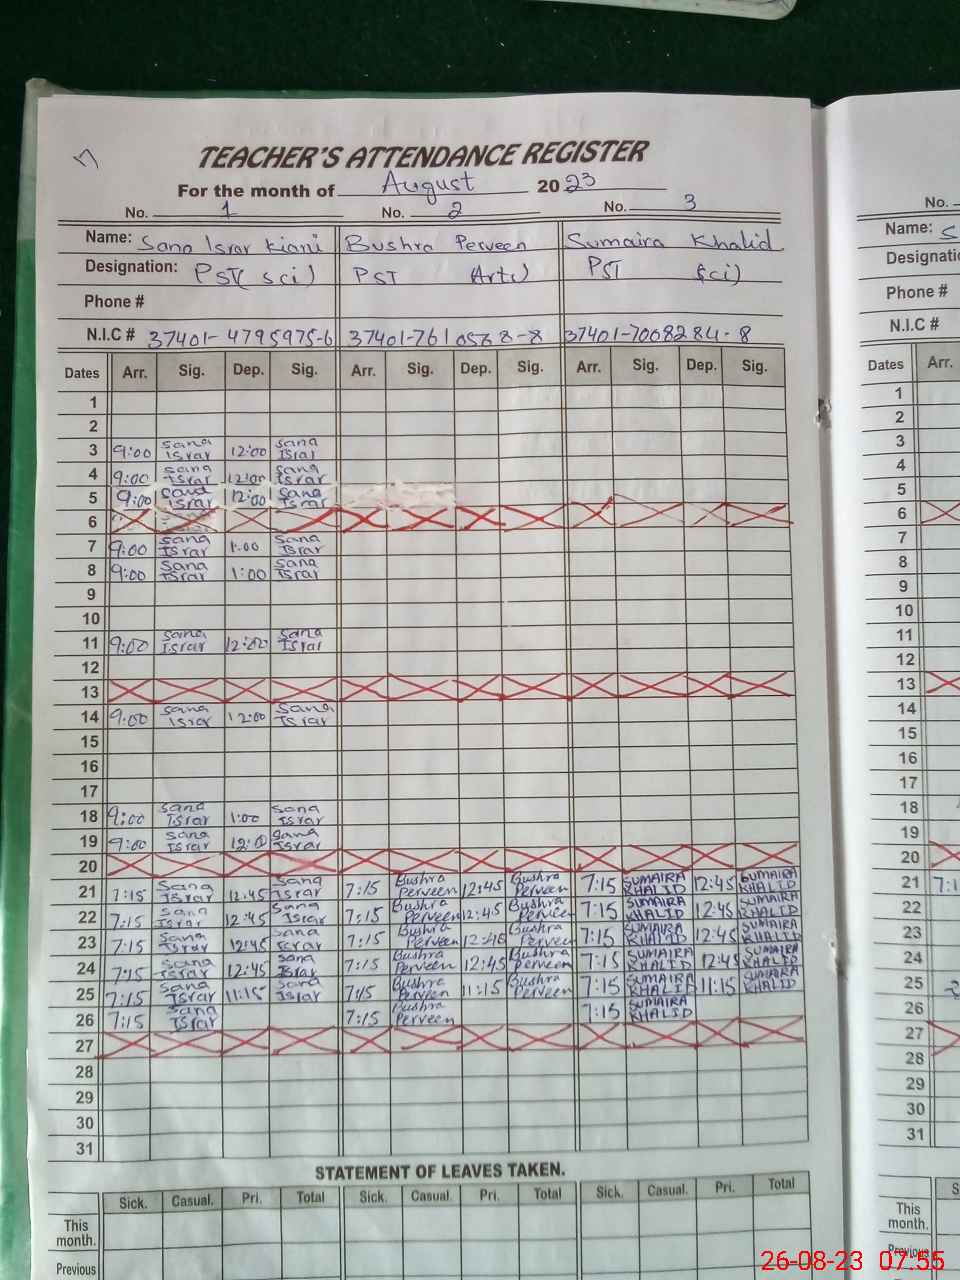 TEACHER'S ATTENDANCE REGISTER
For the month of August 2023
No. 1 No. 2 No. 3
Name: Sana Israr Kiani Bushra Perveen Sumaira Khalid
Designation: PST( sci) PST (Arts) PST (sci)
Phone #
N.I.C # 37401-4795975-6 37401-761 0578 8-8 37401-7008284-8
Dates Arr. Sig. Dep. Sig. Arr. Sig. Dep. Sig. Arr. Sig. Dep. Sig.
1
2
3 9:00 Sana Israr 12:00 Sana Israr
4 9:00 Sana Israr 12:00 Sana Israr
5 9:00 Sana Israr 12:00 Sana Israr
6
7 9:00 Sana Israr 1:00 Sana Israr
8 9:00 Sana Israr 1:00 Sana Israr
9
10
11 9:00 Sana Israr 12:00 Sana Israr
12
13
14 9:00 Sana Israr 12:00 Sana Israr
15
16
17
18 9:00 Sana Israr 1:00 Sana Israr
19 9:00 Sana Israr 12:00 Sana Israr
20
21 7:15 Sana Israr 12:45 Sana Israr 7:15 Bushra Perveen 12:45 Bushra Perveen 7:15 SUMAIRA KHALID 12:45 SUMAIRA KHALID
22 7:15 Sana Israr 12:45 Sana Israr 7:15 Bushra Perveen 12:45 Bushra Perveen 7:15 SUMAIRA KHALID 12:45 SUMAIRA KHALID
23 7:15 Sana Israr 12:45 Sana Israr 7:15 Bushra Perveen 12:45 Bushra Perveen 7:15 SUMAIRA KHALID 12:45 SUMAIRA KHALID
24 7:15 Sana Israr 12:45 Sana Israr 7:15 Bushra Perveen 12:45 Bushra Perveen 7:15 SUMAIRA KHALID 12:45 SUMAIRA KHALID
25 7:15 Sana Israr 11:15 Sana Israr 7:15 Bushra Perveen 11:15 Bushra Perveen 7:15 SUMAIRA KHALID 11:15 SUMAIRA KHALID
26 7:15 Sana Israr 7:15 Bushra Perveen 7:15 SUMAIRA KHALID
27
28
29
30
31
STATEMENT OF LEAVES TAKEN.
Sick. Casual. Pri. Total Sick. Casual. Pri. Total Sick. Casual. Pri. Total
This month.
Previous
No.
Name: S
Designatio
Phone #
N.I.C #
Dates Arr.
1
2
3
4
5
6
7
8
9
10
11
12
13
14
15
16
17
18
19
20
21 7:1
22
23
24
25
26
27
28
29
30
31
S
This month.
Previous
26-08-23 07:55